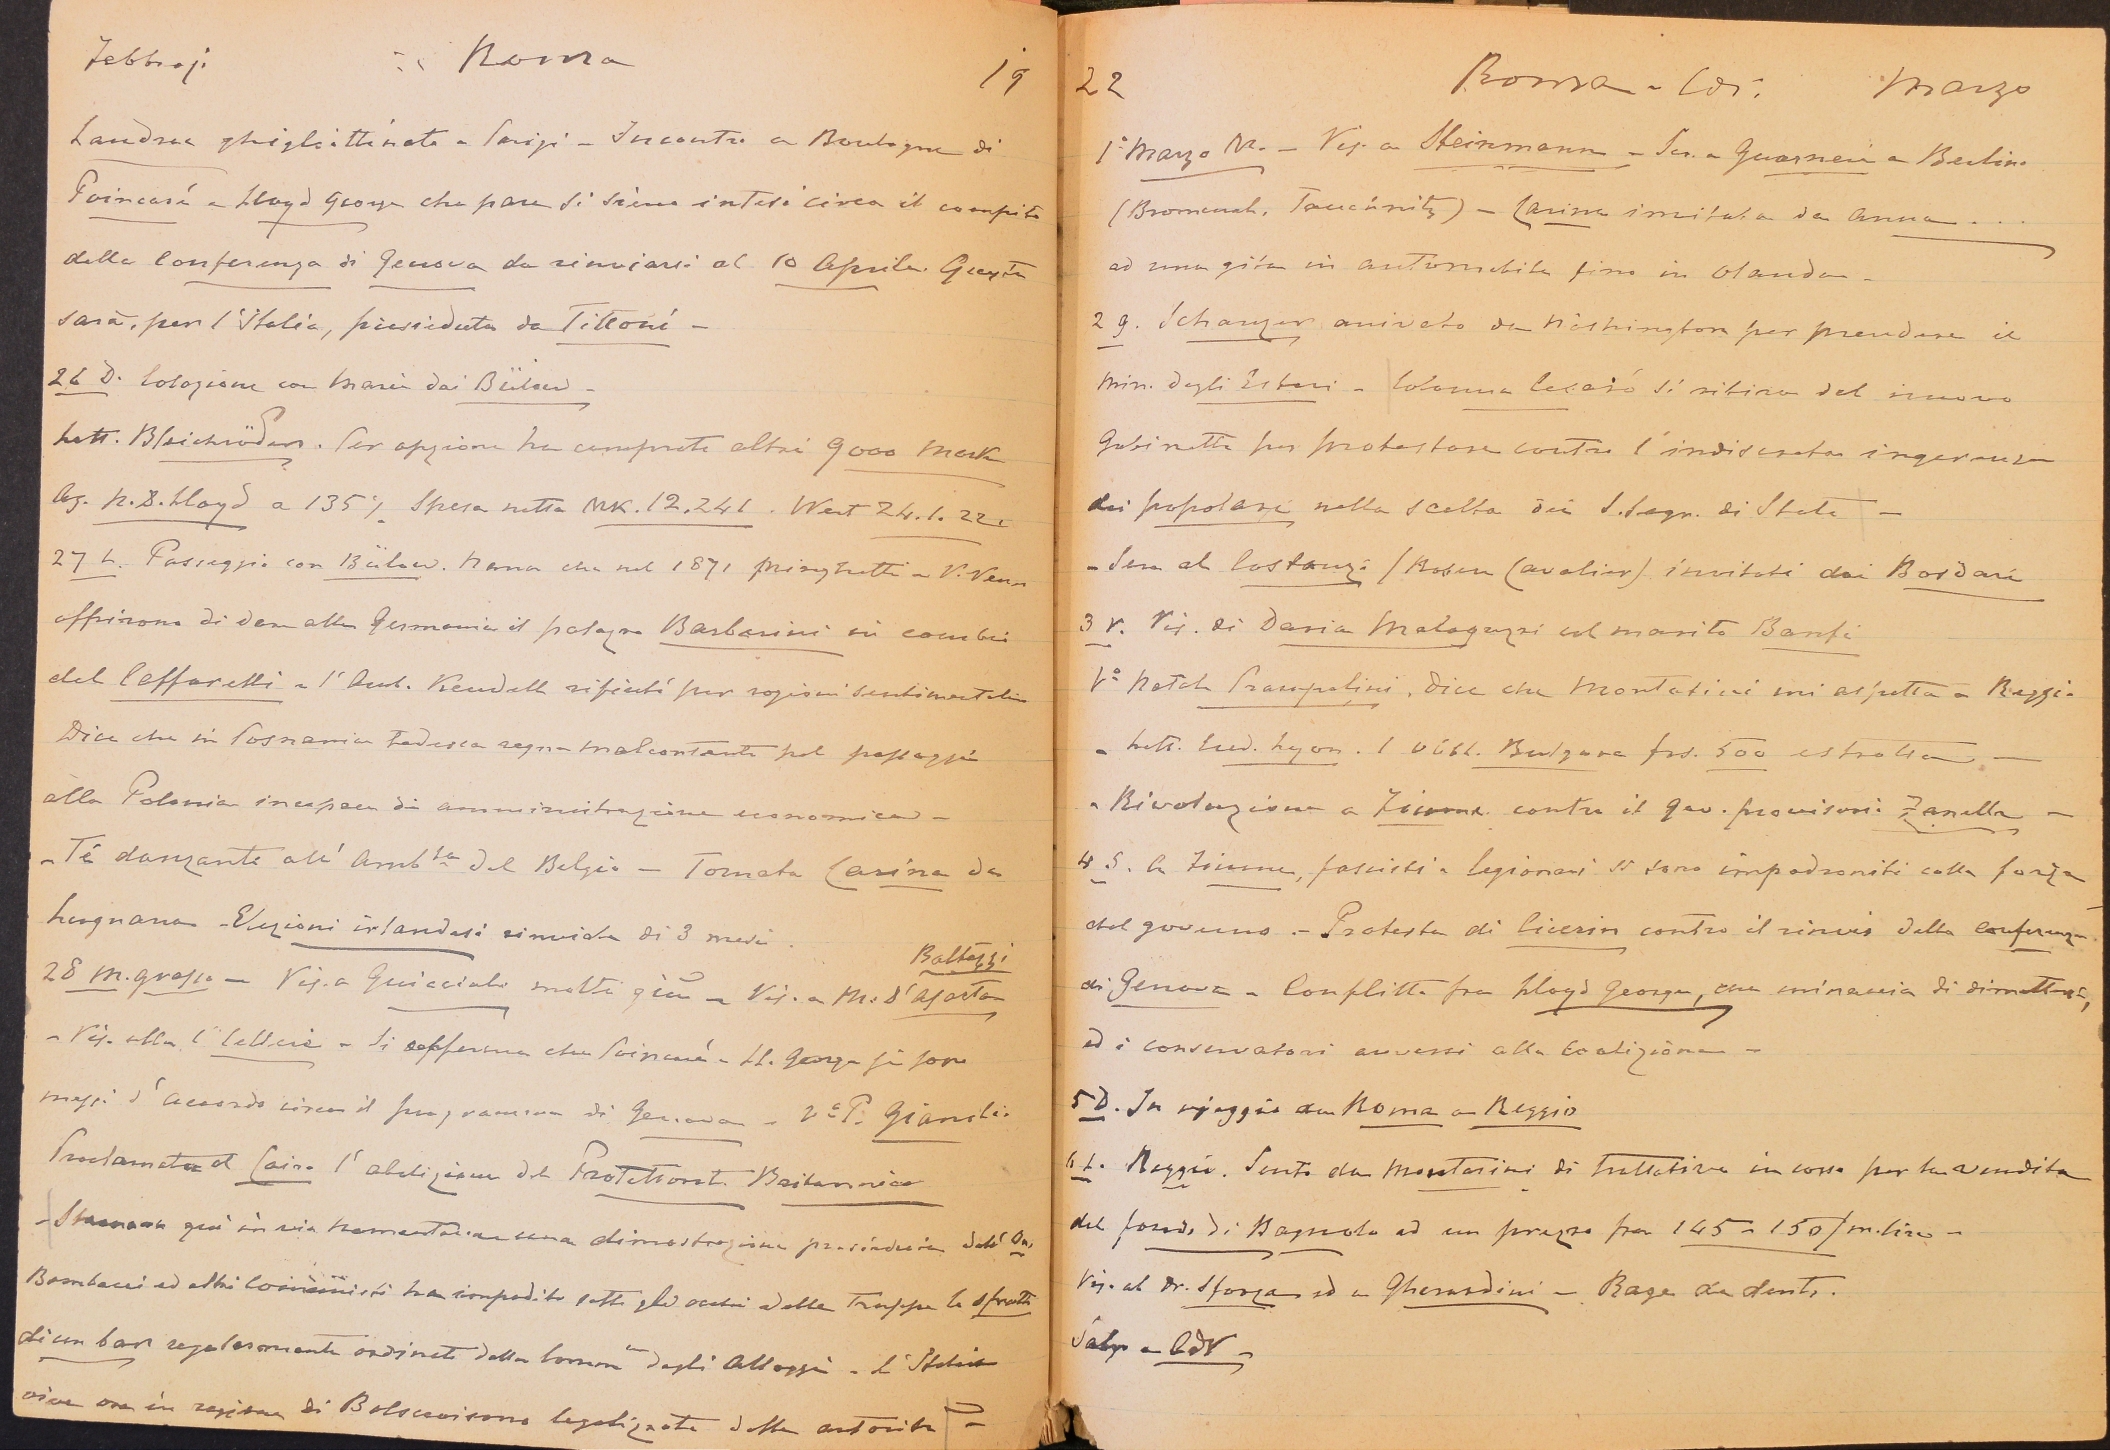 Febbraji Roma 19
Landru ghigliottinato a Parigi – Incontro a Boulogne di
Poincaré e Lloyd George che pare si siano intesi circa il compito
della Conferenza di Genova da rinviarsi al 10 Aprile. Questa
sarà, per l'Italia, presieduta da Tittoni –
26 D. Colazione con Maria dai Bülow –
Lett. Bleichröder. Per opzione ha comprato altri 9000 Mark
Az. N.D. Lloyd a 135% Spesa netta MK. 12.241. Wert 24.1.22.
27 L. Passeggio con Bülow. Narra che nel 1871 Minghetti e V. Ven.
offrirono di dare alla Germania il palazzo Barberini in cambio
del Caffarelli e l'Amb. Keudell rifiutò per ragioni sentimentali
Dice che in Posnania tedesca regna malcontento pel passaggio
alla Polonia incapace di amministrazione economica –
– Té danzante all' Ambta del Belgio – Tornata Carina da
Lugnano – Elezioni irlandesi rinviate di 3 mesi.
28 M. grasso – Vis. a Guiccioli molto giù – Vis. a M. d'Ajeta
Baltazzi
– Vis. alla C. Cellere – Si afferma che Poincaré e Ll. George si sono
messi d'accordo circa il programma di Genova –
Proclamata al Cairo l'abolizione del Protettorato Britannico
– Stamane qui in via Nomentana una dimostrazione presieduta dall' On.
Bombacci ed altri Comunisti ha impedito sotto gli occhi della truppa lo sfratto
di un bar regolarmente ordinato dalla Commne degli Alloggi – L'Italia
vive ora in regime di Bolscevismo legalizzato dalle autorità –
22 Roma – Cdi. Marzo
1° Marzo M. – Vis. a Steinmann – Scr. a Guarneri a Berlino
(Tauchnitz) – Carina invitata da Anna ...
ad una gita in automobile fino in Olanda –
2 g. Schanzer arrivato da Washington per prendere il
Min. degli Esteri – Colonna Cesarò si ritira dal nuovo
Gabinetto per protestare contro l'indiscreta ingerenza
dei popolari nella scelta dei S. Segr. di Stato –
– Sera al Costanzi (Rosen Cavalier) invitati dai Bosdari
3 V. Vis. di Daria Malaguzzi col marito Banfi
Prampolini, dice che Montasini mi aspetta a Reggio
– Lett. Cred. Lyon. 1 obbl. Bulgara frs. 500 estratta –
– Rivoluzione a Fiume contro il gov. provvisorio Zanella –
4 S. A Fiume, fascisti e legionari si sono impadroniti colla forza
del governo. – Protesta di Cicerin contro il rinvio della conferenza
di Genova – Conflitto fra Lloyd George, che minaccia di dimettersi,
ed i conservatori avversi alla coalizione –
5 D. In viaggio da Roma a Reggio
6 L. Reggio. Sento da Montasini di trattative in corso per la vendita
del fondo di Bagnolo ad un prezzo fra 145 e 150/m. lire –
Vis. al Dr. Sforza ed a Gherardini –